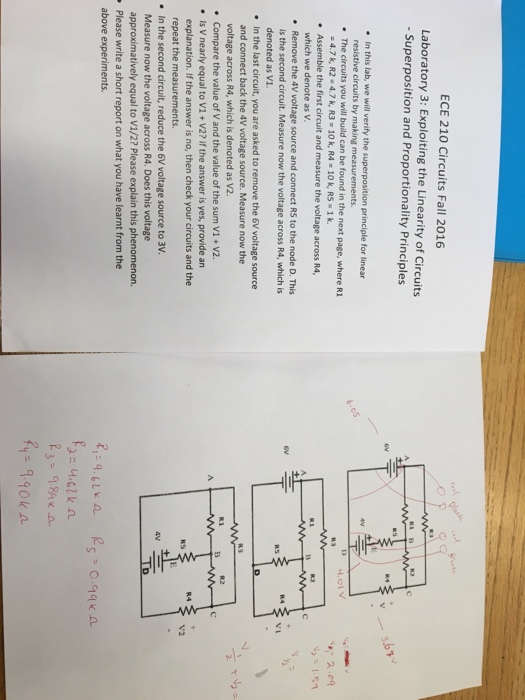 ECE 210 Circuits Fall 2016
Laboratory 3: Exploiting the Linearity of Circuits
- Superposition and Proportionality Principles
• In this lab, we will verify the superposition principle for linear
resistive circuits by making measurements.
• The circuits you will build can be found in the next page, where R1
= 4.7 k, R2 = 4.7 k, R3 = 10 k, R4 = 10 k, R5 = 1 k.
• Assemble the first circuit and measure the voltage across R4,
which we denote as V.
• Remove the 4V voltage source and connect R5 to the node D. This
is the second circuit. Measure now the voltage across R4, which is
denoted as V1.
• In the last circuit, you are asked to remove the 6V voltage source
and connect back the 4V voltage source. Measure now the
voltage across R4, which is denoted as V2.
• Compare the value of V and the value of the sum V1 + V2.
• Is V nearly equal to V1 + V2? If the answer is yes, provide an
explanation. If the answer is no, then check your circuits and the
repeat the measurements.
• In the second circuit, reduce the 6V voltage source to 3V.
Measure now the voltage across R4. Does this voltage
approximatively equal to V1/2? Please explain this phenomenon.
• Please write a short report on what you have learnt from the
above experiments.
R3
A R1 B R2 C
6V R5 R4 + V -
4V E
D
6.05
4.01V
3.63v
V1 = 2.09
V2 = 1.59
R3
A R1 B R2 C
6V R5 R4 + V1 -
D
R3
A R1 B R2 C
R5 R4 + V2 -
4V E
D
R1 = 4.62k Ω R5 = 0.99k Ω
R2 = 4.62k Ω
R3 = 9.84k Ω
R4 = 9.90k Ω